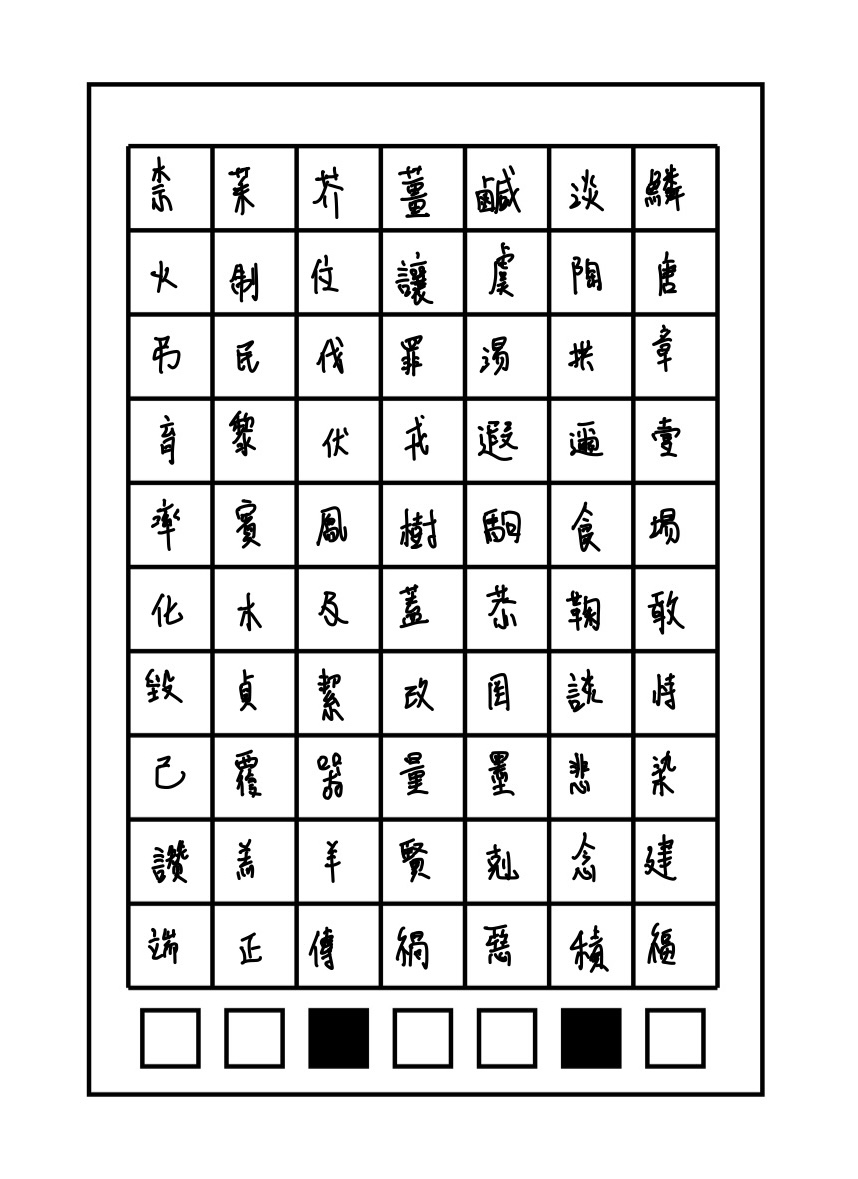 柰菜芥薑鹹淡鱗
火制位讓虞陶唐
弔民伐罪湯拱章
育黎伏戎遐邇壹
率賓鳳樹駒食場
化水及蓋恭鞠敢
毀貞絜改罔談恃
己覆器量墨悲染
讚羔羊賢剋念建
端正傳禍惡積福